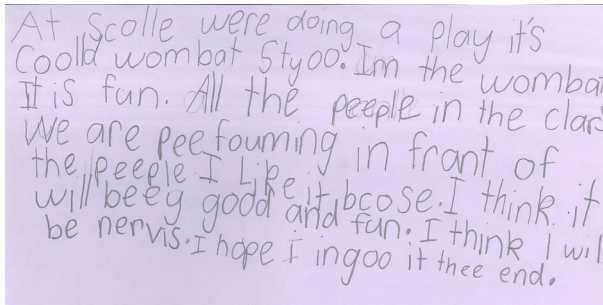 At Scolle were doing a play it's
Coolld wombat Styoo. Im the wombat
It is fun. All the peeple in the clars
We are pee fouming in frant of
the peeple I Like it bcose. I think it
will beey good and fun. I think I wil
be nervis. I hope I ingoo it thee end.